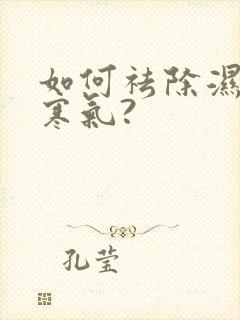 如何祛除濕
寒氣?
孔莹